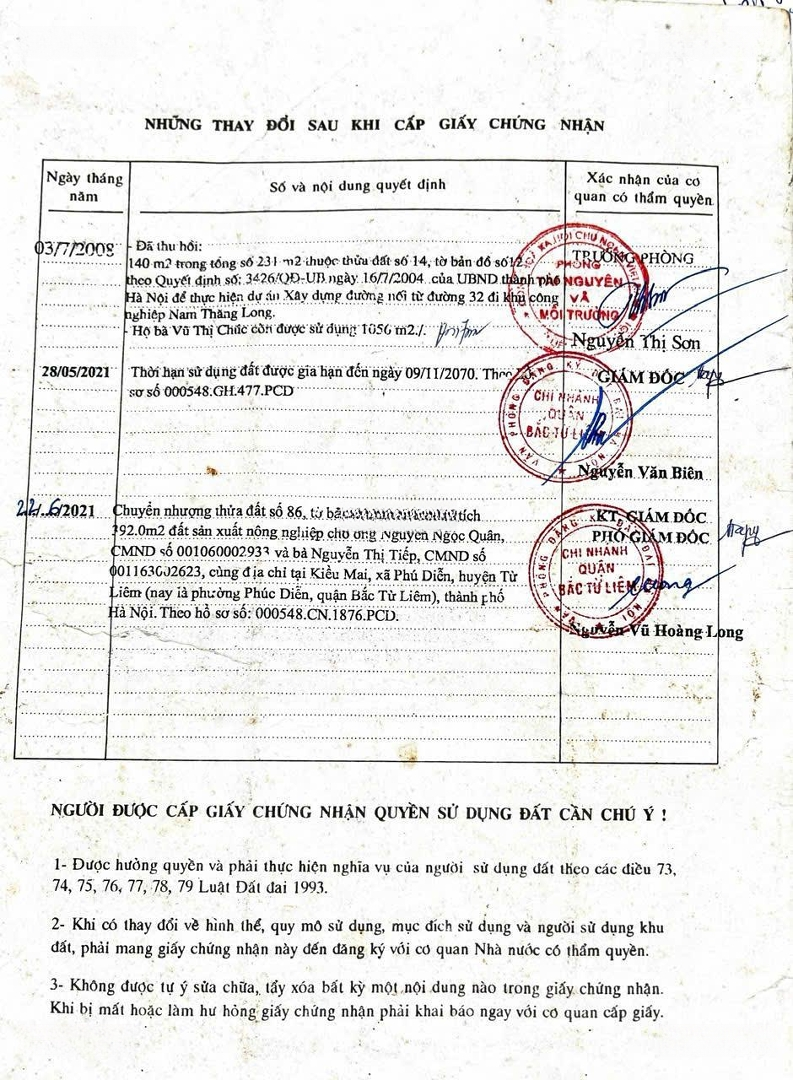 NHỮNG THAY ĐỔI SAU KHI CẤP GIẤY CHỨNG NHẬN
Ngày tháng năm
Số và nội dung quyết định
Xác nhận của cơ quan có thẩm quyền
03/7/2008
- Đã thu hồi:
140 m2 trong tổng số 231 m2 thuộc thửa đất số 14, tờ bản đồ số 12
theo Quyết định số: 3426/QĐ-UB ngày 16/7/2004 của UBND thành phố
Hà Nội để thực hiện dự án Xây dựng đường nối từ đường 32 đi khu công
nghiệp Nam Thăng Long.
- Hộ bà Vũ Thị Chúc còn được sử dụng 1056 m2./.
TRƯỞNG PHÒNG
PHÒNG
NGUYÊN
VÀ
MÔI TRƯỜNG
Nguyễn Thị Sơn
28/05/2021
Thời hạn sử dụng đất được gia hạn đến ngày 09/11/2070. Theo
sơ số 000548.GH.477.PCD
GIÁM ĐỐC
CHI NHÁNH
QUẬN
BẮC TỪ LIÊM
Nguyễn Văn Biên
22.6/2021
Chuyển nhượng thửa đất số 86, tích
392.0m2 đất sản xuất nông nghiệp cho ông Nguyễn Ngọc Quân,
CMND số 001060002933 và bà Nguyễn Thị Tiếp, CMND số
001163002623, cùng địa chỉ tại Kiều Mai, xã Phú Diễn, huyện Từ
Liêm (nay là phường Phúc Diễn, quận Bắc Từ Liêm), thành phố
Hà Nội. Theo hồ sơ số: 000548.CN.1876.PCD.
KT. GIÁM ĐỐC
PHÓ GIÁM ĐỐC
CHI NHÁNH
QUẬN
BẮC TỪ LIÊM
Nguyễn Vũ Hoàng Long
NGƯỜI ĐƯỢC CẤP GIẤY CHỨNG NHẬN QUYỀN SỬ DỤNG ĐẤT CẦN CHÚ Ý !
1- Được hưởng quyền và phải thực hiện nghĩa vụ của người sử dụng đất theo các điều 73,
74, 75, 76, 77, 78, 79 Luật Đất đai 1993.
2- Khi có thay đổi về hình thể, quy mô sử dụng, mục đích sử dụng và người sử dụng khu
đất, phải mang giấy chứng nhận này đến đăng ký với cơ quan Nhà nước có thẩm quyền.
3- Không được tự ý sửa chữa, tẩy xóa bất kỳ một nội dung nào trong giấy chứng nhận.
Khi bị mất hoặc làm hư hỏng giấy chứng nhận phải khai báo ngay với cơ quan cấp giấy.